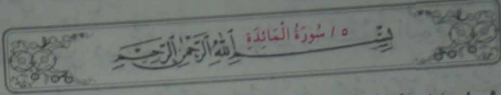 ٥ / سُورَةُ الْمَائِدَةِ
بِسْمِ اللَّهِ الرَّحْمَٰنِ الرَّحِيمِ